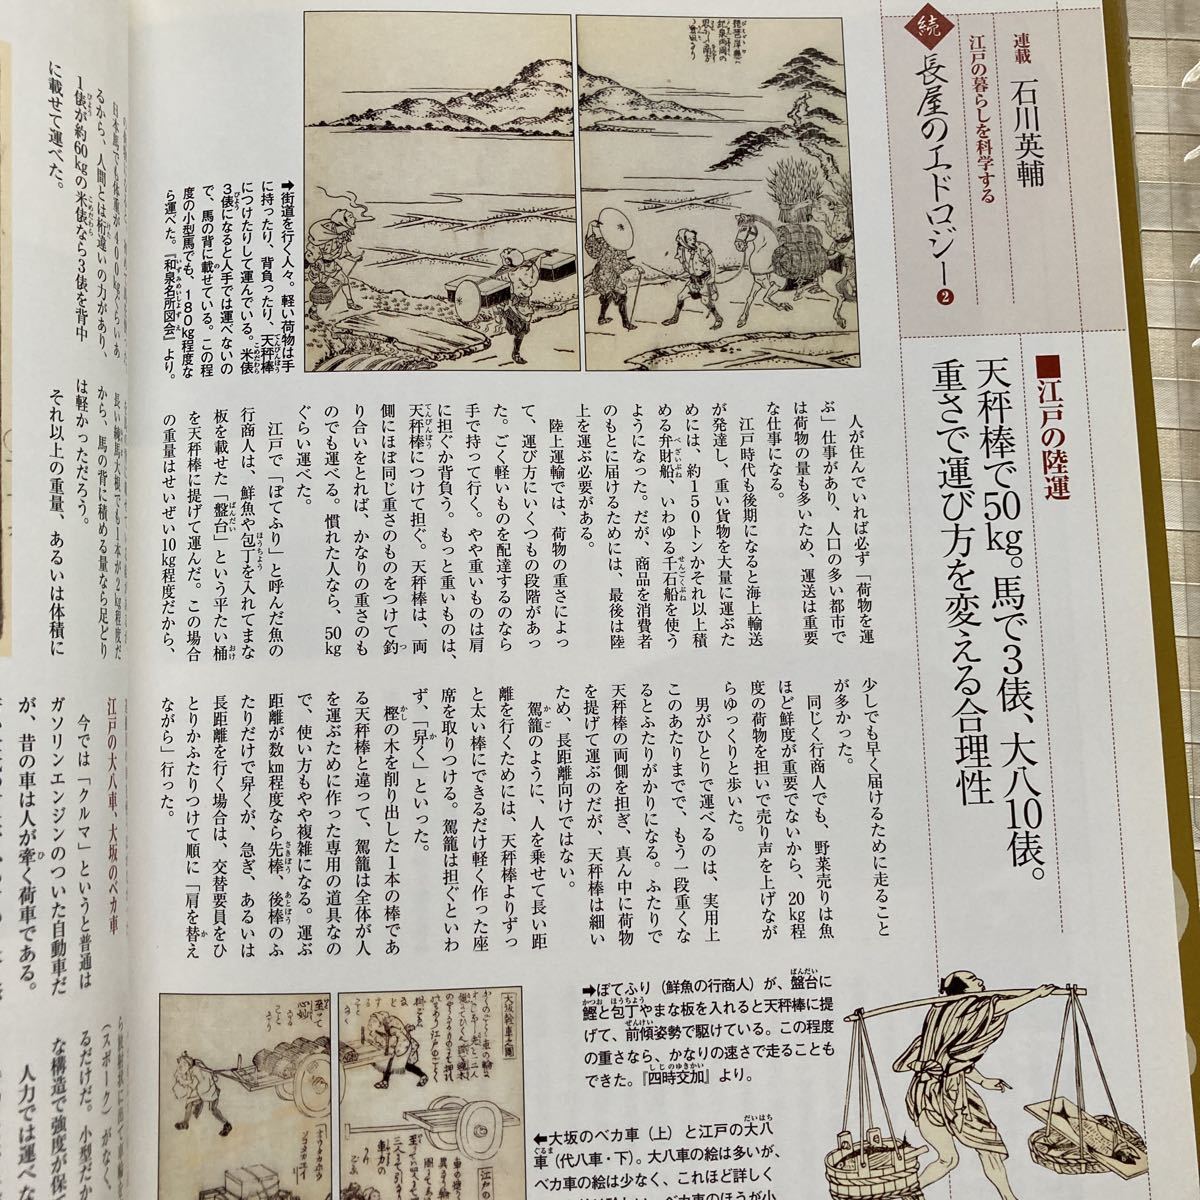 連載 石川英輔
江戸の暮らしを科学する
続 長屋のエドロジー❷
■江戸の陸運
天秤棒で50kg。馬で3俵、大八10俵。
重さで運び方を変える合理性
➡街道を行く人々。軽い荷物は手
に持ったり、背負ったり、天秤棒
につけたりして運んでいる。米俵
3俵になると人手では運べないの
で、馬の背に載せている。この程
度の小型馬でも、180kg程度な
ら運べた。『和泉名所図会』より。
人が住んでいれば必ず「荷物を運
ぶ」仕事があり、人口の多い都市で
は荷物の量も多いため、運送は重要
な仕事になる。
江戸時代も後期になると海上輸送
が発達し、重い貨物を大量に運ぶた
めには、約150トンかそれ以上積
める弁財船、いわゆる千石船を使う
ようになった。だが、商品を消費者
のもとに届けるためには、最後は陸
上を運ぶ必要がある。
陸上運輸では、荷物の重さによっ
て、運び方にいくつもの段階があっ
た。ごく軽いものを配達するのなら
手で持って行く。やや重いものは肩
に担ぐか背負う。もっと重いものは、
天秤棒につけて担ぐ。天秤棒は、両
側にほぼ同じ重さのものをつけて釣
り合いをとれば、かなりの重さのも
のでも運べる。慣れた人なら、50kg
ぐらい運べた。
江戸で「ぼてふり」と呼んだ魚の
行商人は、鮮魚や包丁を入れてまな
板を載せた「盤台」という平たい桶
を天秤棒に提げて運んだ。この場合
の重量はせいぜい10kg程度だから、
少しでも早く届けるために走ること
が多かった。
同じく行商人でも、野菜売りは魚
ほど鮮度が重要でないから、20kg程
度の荷物を担いで売り声を上げなが
らゆっくりと歩いた。
男がひとりで運べるのは、実用上
このあたりまでで、もう一段重くな
るとふたりがかりになる。ふたりで
天秤棒の両側を担ぎ、真ん中に荷物
を提げて運ぶのだが、天秤棒は細い
ため、長距離向けではない。
駕籠のように、人を乗せて長い距
離を行くためには、天秤棒よりずっ
と太い棒にできるだけ軽く作った座
席を取りつける。駕籠は担ぐといわ
ず、「舁く」といった。
樫の木を削り出した1本の棒であ
る天秤棒と違って、駕籠は全体が人
を運ぶために作った専用の道具なの
で、使い方もやや複雑になる。運ぶ
距離が数km程度なら先棒、後棒のふ
たりだけで舁くが、急ぎ、あるいは
長距離を行く場合は、交替要員をひ
とりかふたりつけて順に「肩を替え
ながら」行った。
➡ぼてふり（鮮魚の行商人）が、盤台に
鰹と包丁やまな板を入れると天秤棒に提
げて、前傾姿勢で駆けている。この程度
の重さなら、かなりの速さで走ることも
できた。『四時交加』より。
⬅大坂のベカ車（上）と江戸の大八
車（代八車・下）。大八車の絵は多いが、
ベカ車の絵は少なく、これほど詳しく
大坂板車之図
日本馬でも体重が400kgぐらいあ
るから、人間とは桁違いの力があり、
1俵が約60kgの米俵なら3俵を背中
に載せて運べた。
長い練馬大根でも1本が2kg程度だ
から、馬の背に積める量なら足どり
は軽かっただろう。
それ以上の重量、あるいは体積に
江戸の大八車、大坂のベカ車
今では「クルマ」というと普通は
ガソリンエンジンのついた自動車だ
が、昔の車は人が牽く荷車である。
（スポーク）がなく、
るだけだ。小型だか
な構造で強度が保
人力では運べな